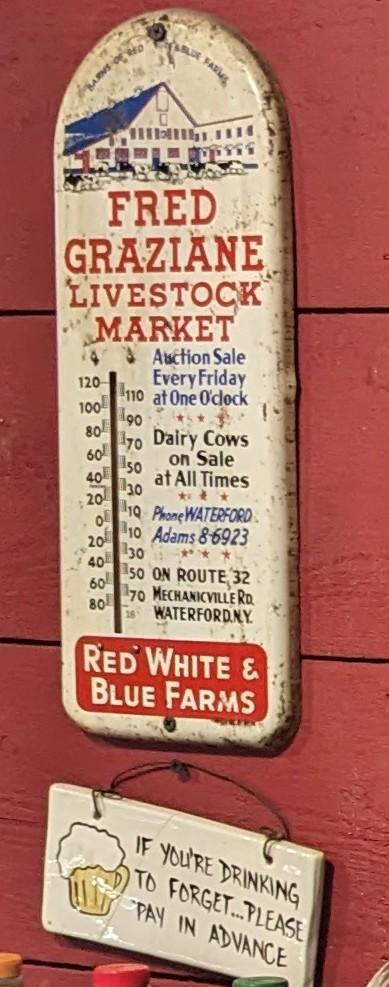 BARNS OF RED WHITE & BLUE FARMS
FRED
GRAZIANE
LIVESTOCK
MARKET
Auction Sale
Every Friday
at One O'clock
Dairy Cows
on Sale
at All Times
Phone WATERFORD
Adams 8-6923
ON ROUTE 32
MECHANICVILLE RD.
WATERFORD, N.Y.
120
110
100
90
80
70
60
50
40
30
20
10
0
10
20
30
40
50
60
70
80
RED WHITE &
BLUE FARMS
IF YOU'RE DRINKING
TO FORGET...PLEASE
PAY IN ADVANCE